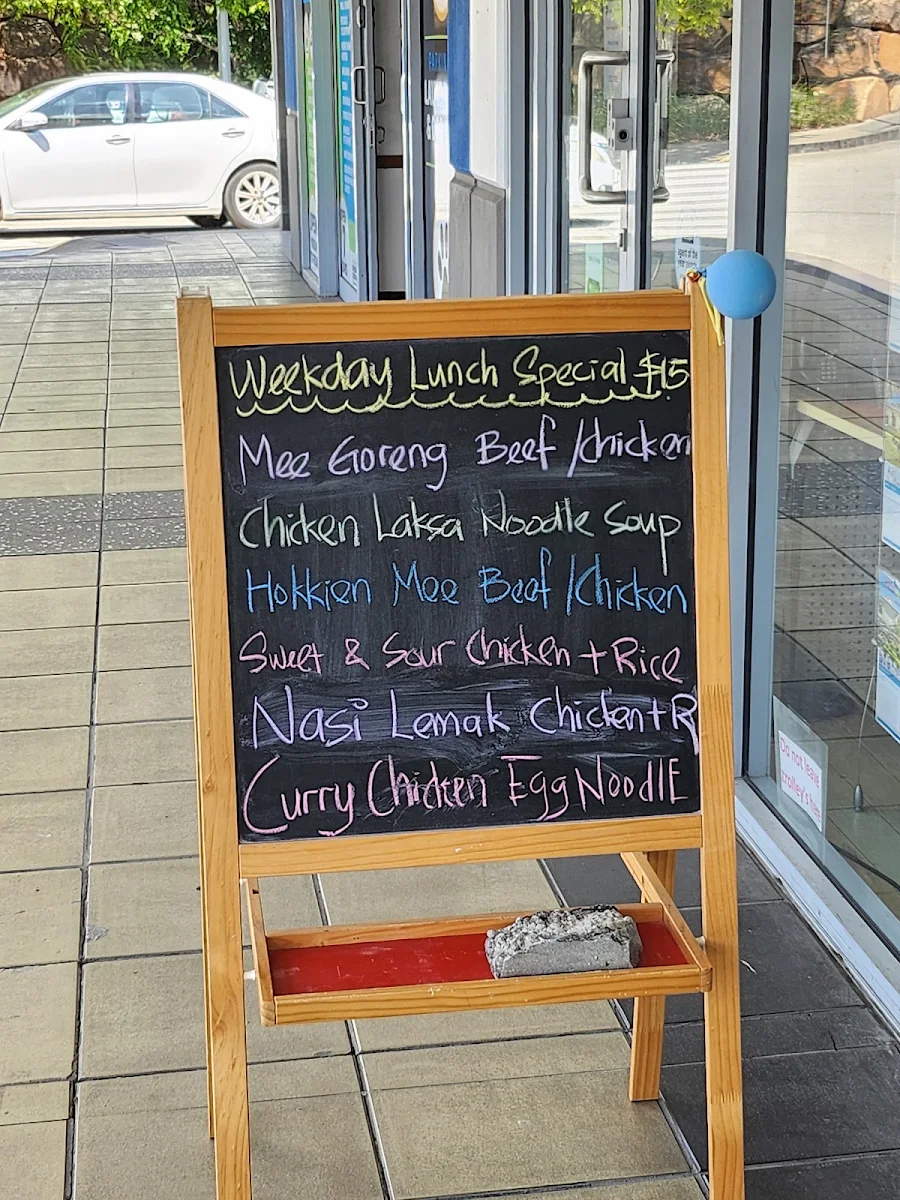 Weekday Lunch Special $15
Mee Goreng Beef /Chicken
Chicken Laksa Noodle Soup
Hokkien Mee Beef /Chicken
Sweet & Sour Chicken + Rice
Nasi Lemak Chicken + R
Curry Chicken Egg NoodlE
Do not leave
trolley's here